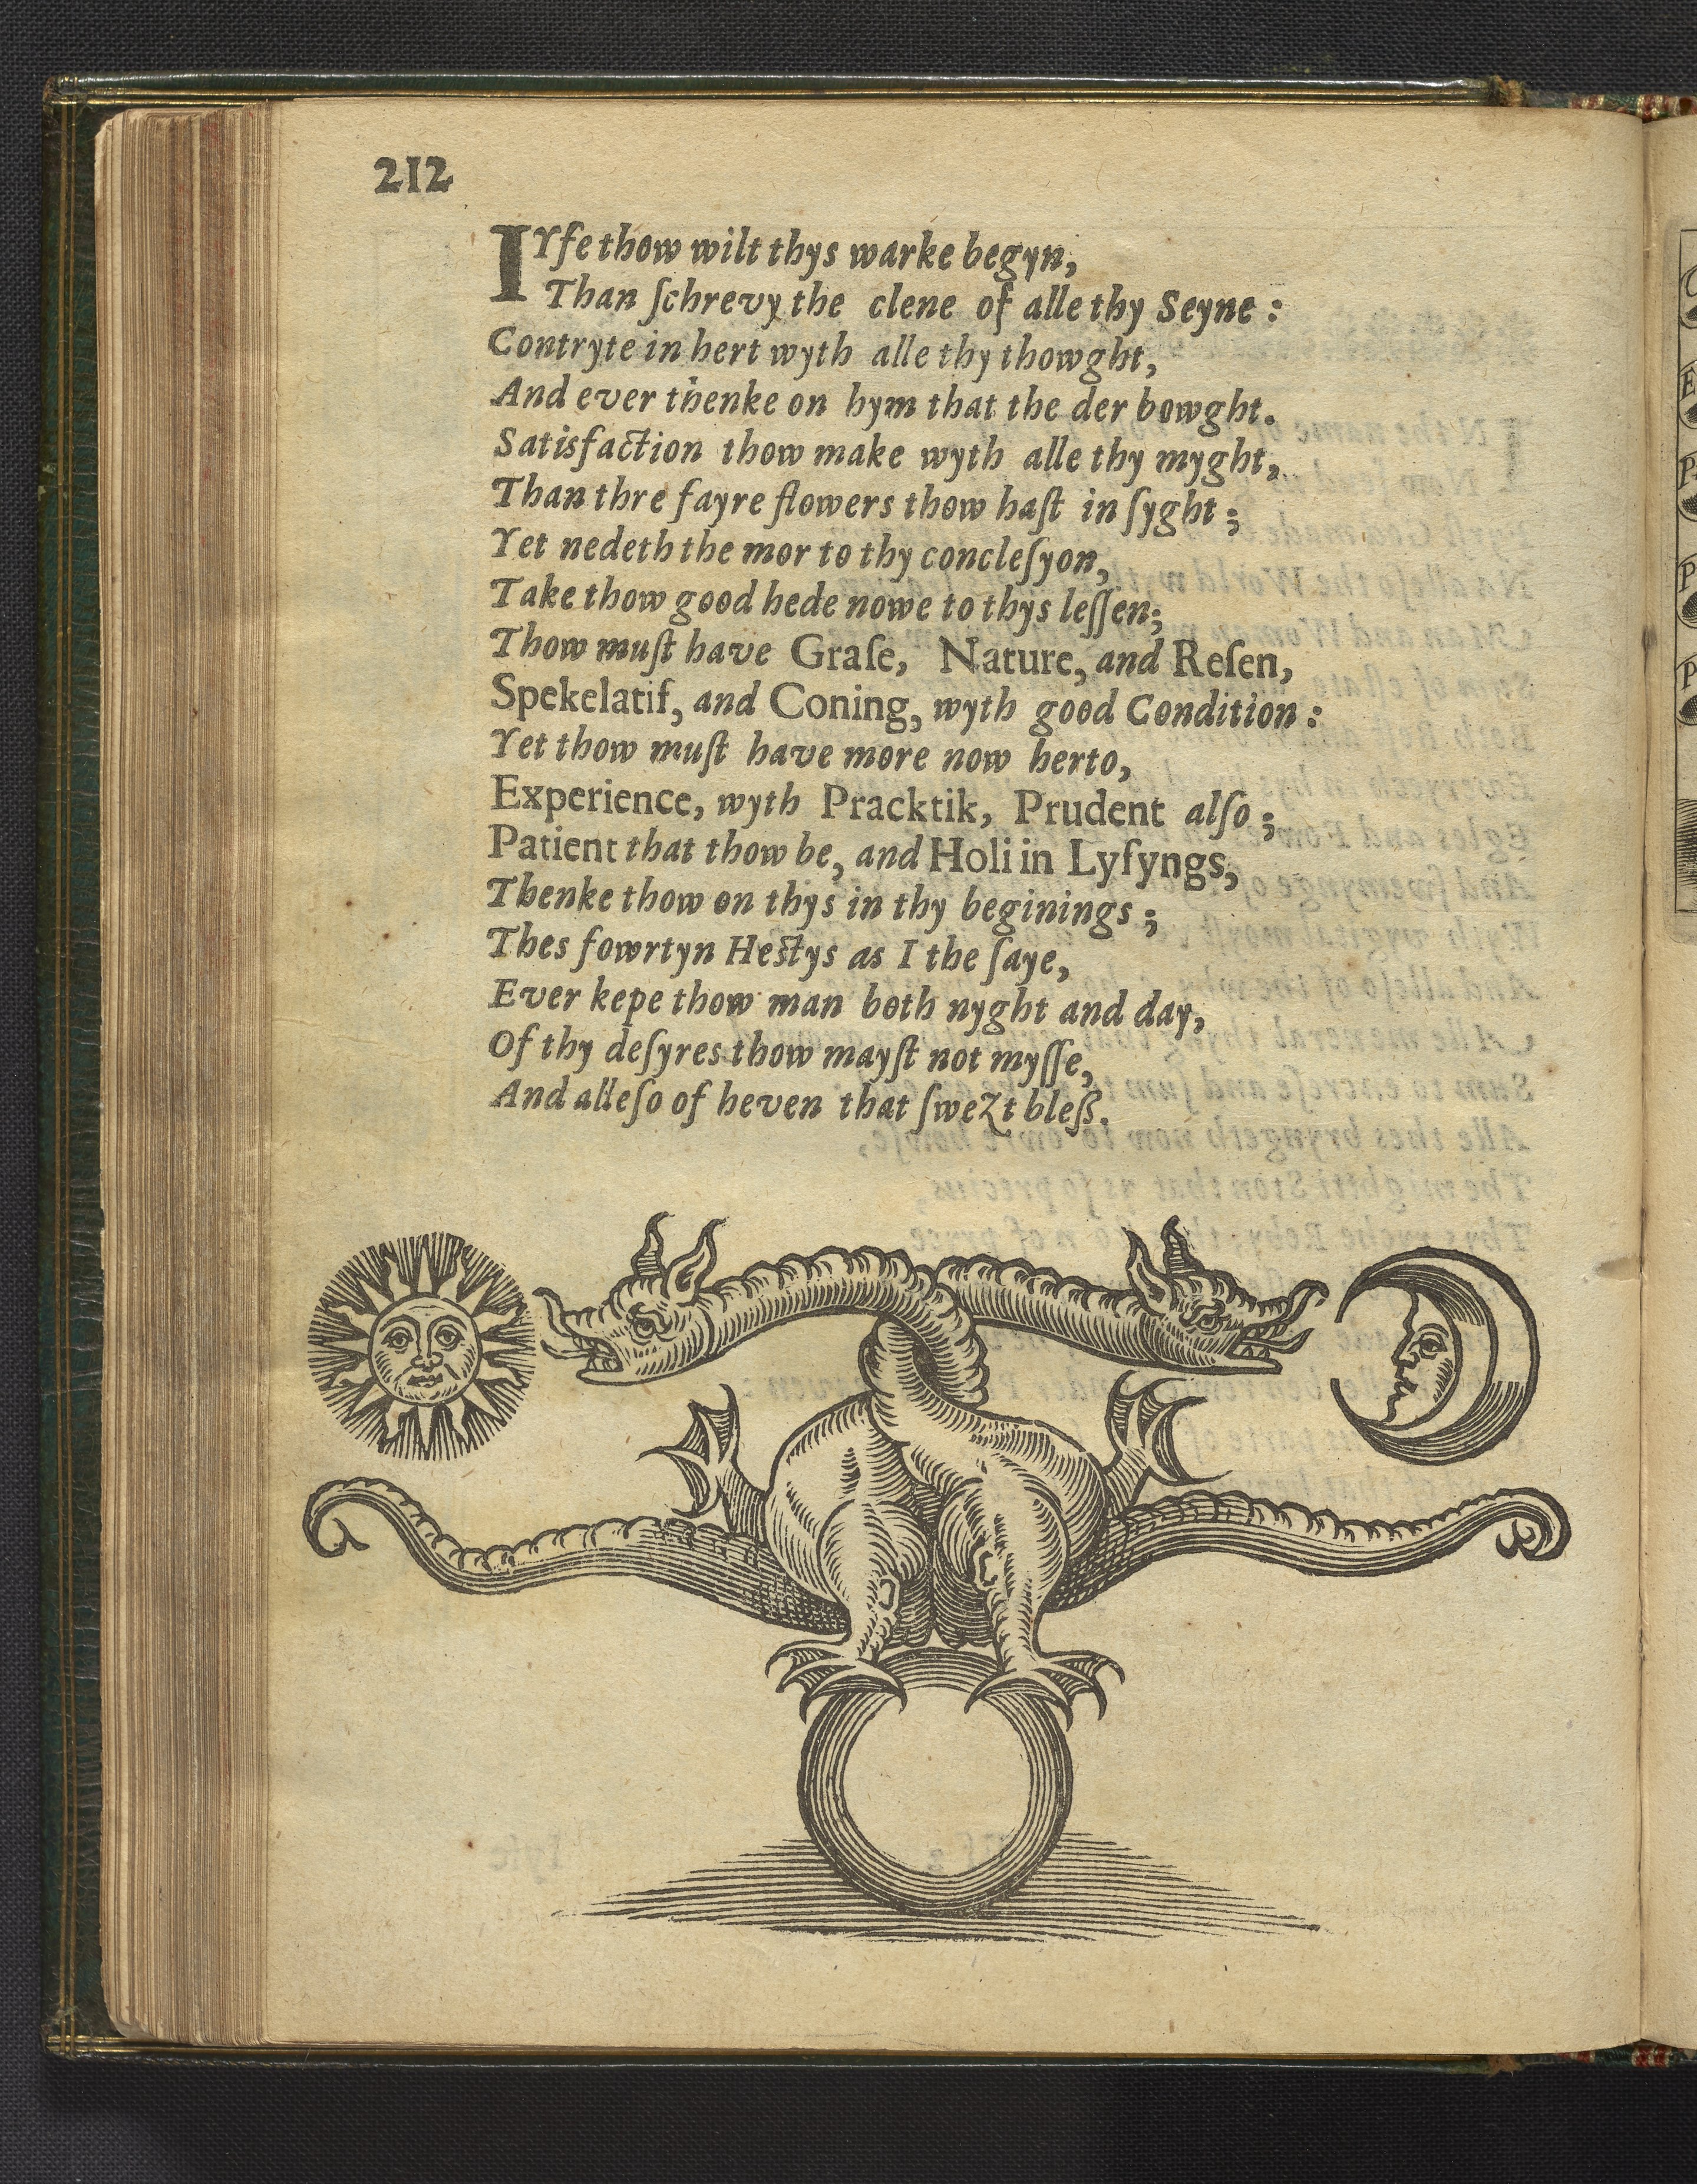 212
IYſe thow wilt thys warke begyn,
Than ſchrevy the clene of alle thy Seyne :
Contryte in hert wyth alle thy thowght,
And ever thenke on hym that the der bowght.
Satisfaction thow make wyth alle thy myght,
Than thre fayre flowers thow haſt in ſyght ;
Yet nedeth the mor to thy concleſyon,
Take thow good hede nowe to thys leſſen;
Thow muſt have Graſe, Nature, and Reſen,
Spekelatif, and Coning, wyth good Condition :
Yet thow muſt have more now herto,
Experience, wyth Pracktik, Prudent alſo ;
Patient that thow be, and Holi in Lyfyngs,
Thenke thow on thys in thy beginings ;
Thes fowrtyn Hestys as I the ſaye,
Ever kepe thow man both nyght and day,
Of thy deſyres thow mayſt not myſſe,
And alleſo of heven that ſweZt bleß.